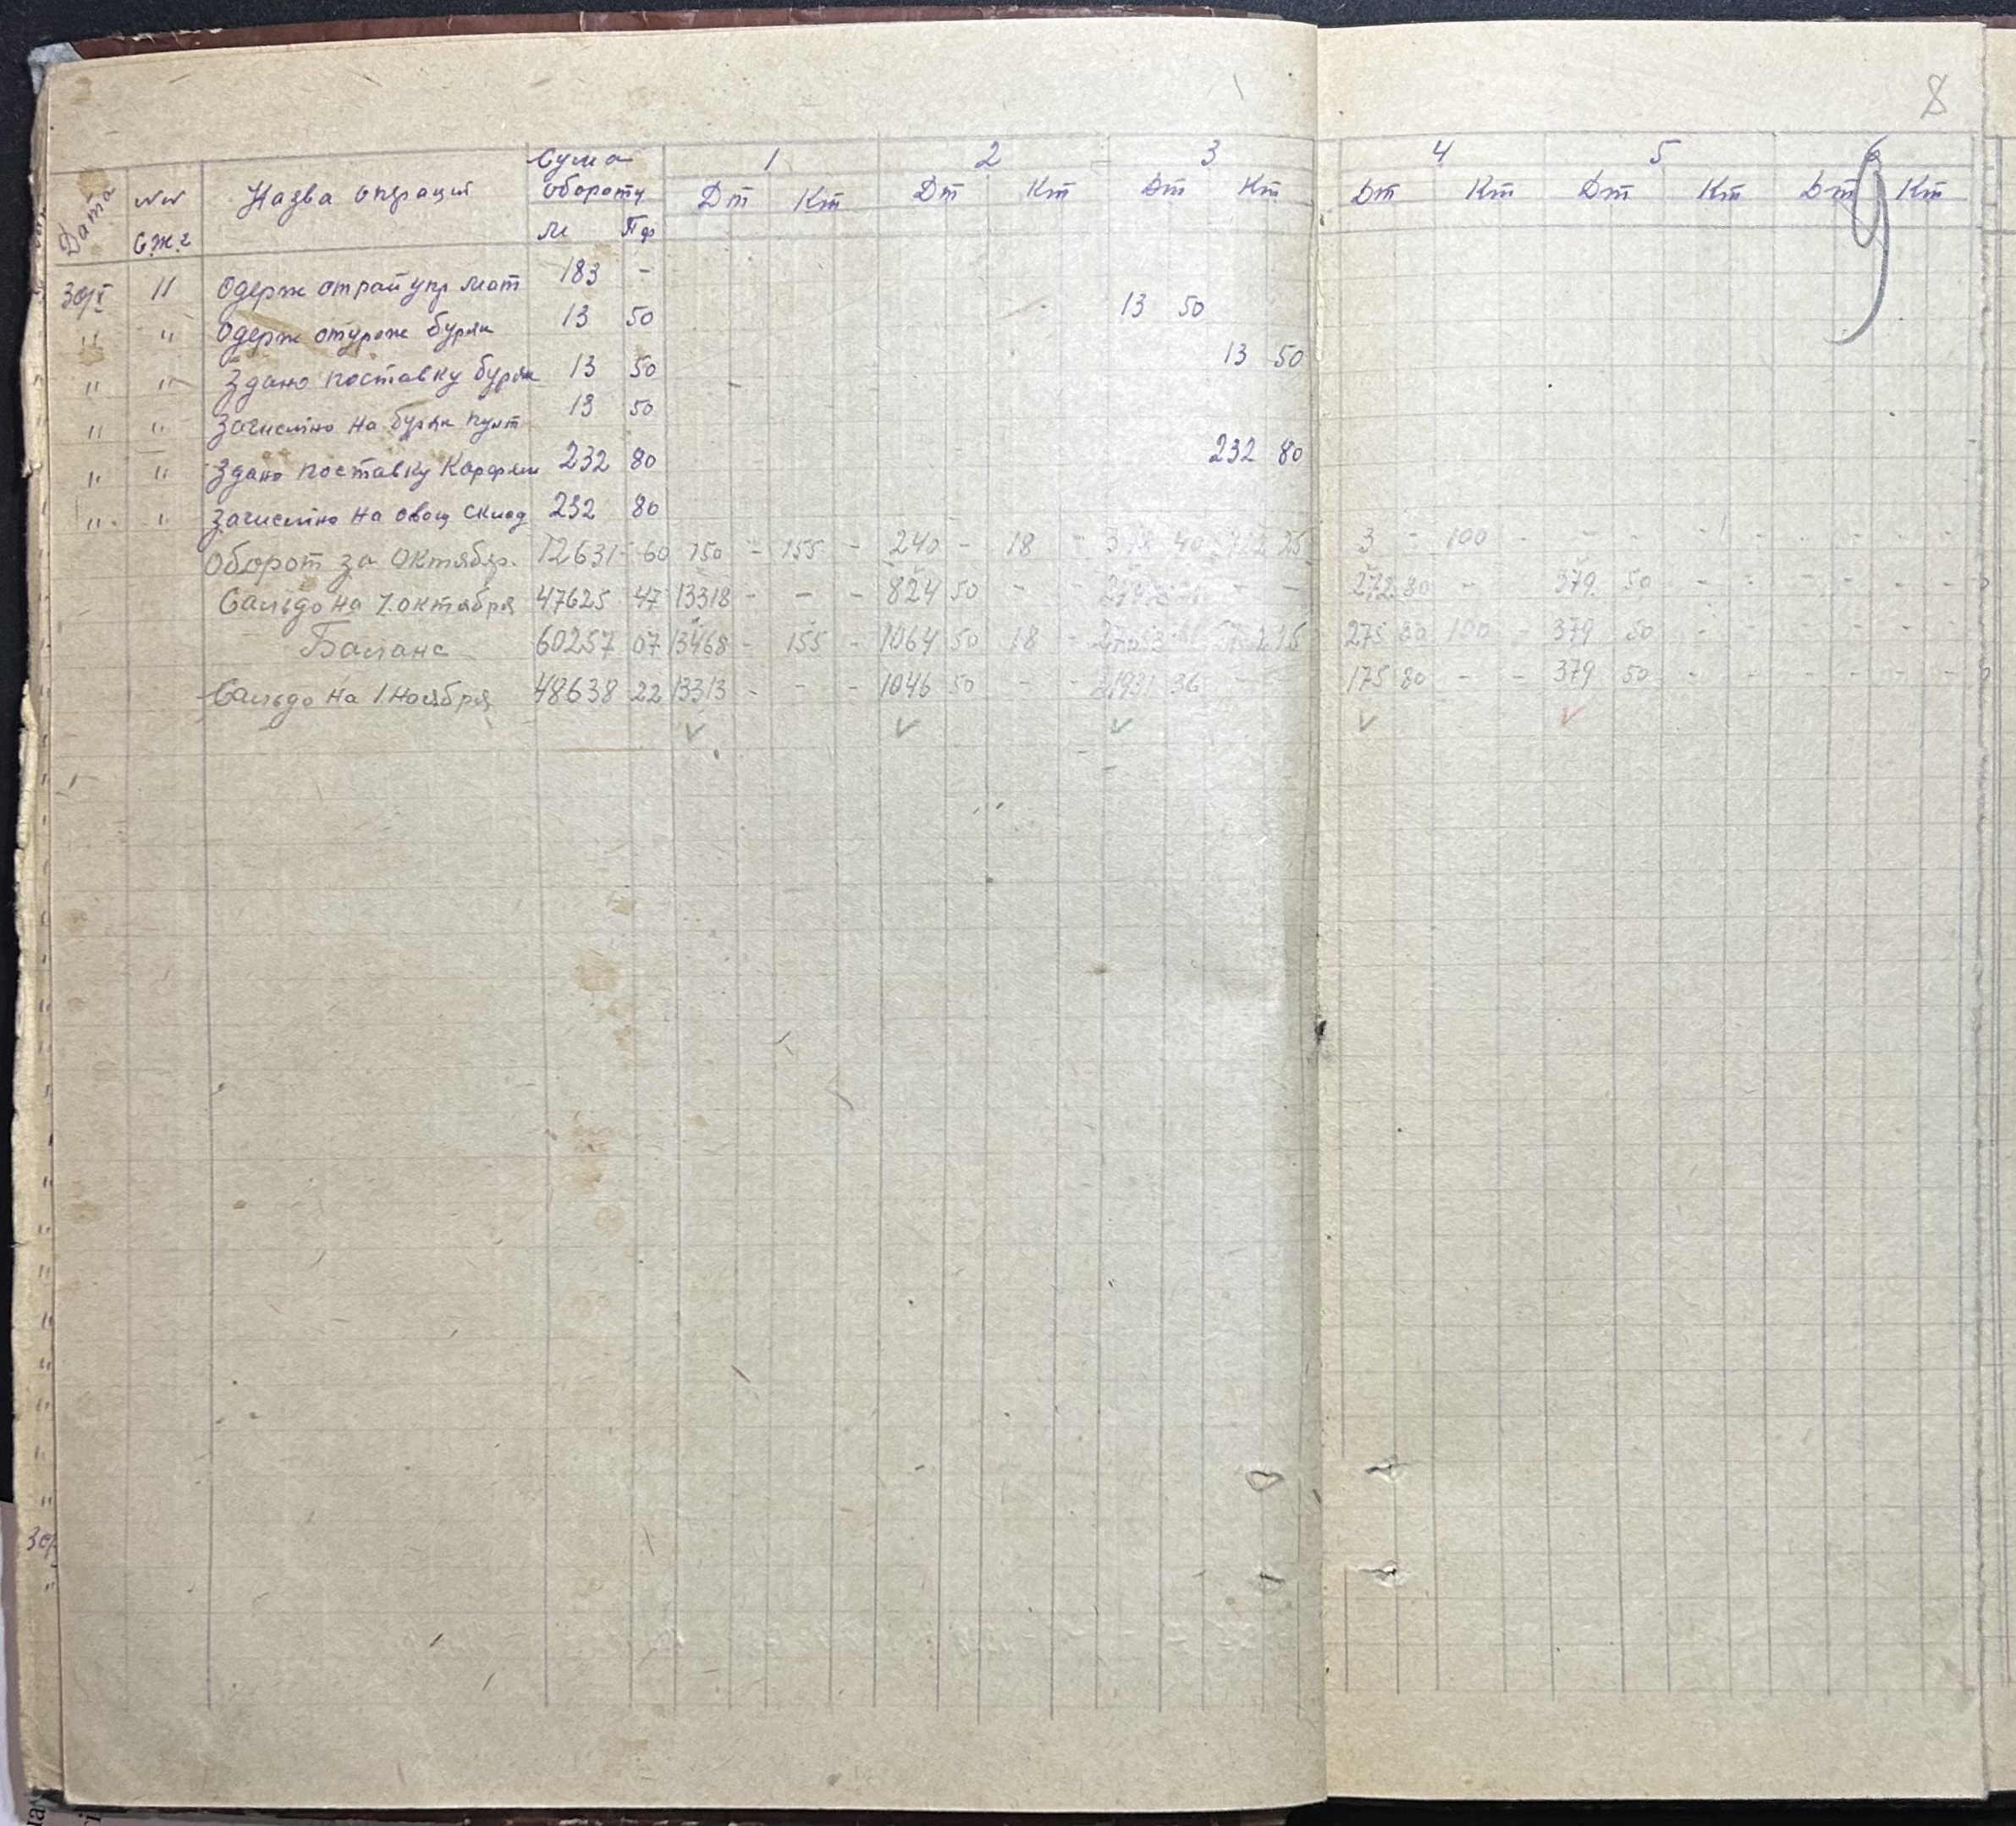 8
Сума 1 2 3 4 5 6 9
Дата №№ Назва операциї обороту Дт Кт Дт Кт Дт Кт Дт Кт Дт Кт Дт Кт
с.ж.г м Пф
30/X 11 Одерж отрай упр мот 183 -
" " Одерж отурож буряк 13 50 13 50
" " Здано поставку буряк 13 50 13 50
" " Зачислiно на буряк пункт 13 50
" " Здано поставку Карфли 232 80 232 80
" " Зачислiно на овощ склад 232 80
Оборот за Октябр. 12631 60 150 - 155 - 240 - 18 - 40 25 3 - 100 - - - - - - - - -
Сальдо на 1. октября 47625 47 13318 - - - 824 50 - - - - 272 80 - 379 50 - - - - - -
Баланс 60257 07 13468 - 155 - 1064 50 18 - 275 80 100 - 379 50 - - - - - -
Сальдо на 1 Ноября 48638 22 13313 - - - 1046 50 - - 21931 36 - - 175 80 - - 379 50 - - - - - -